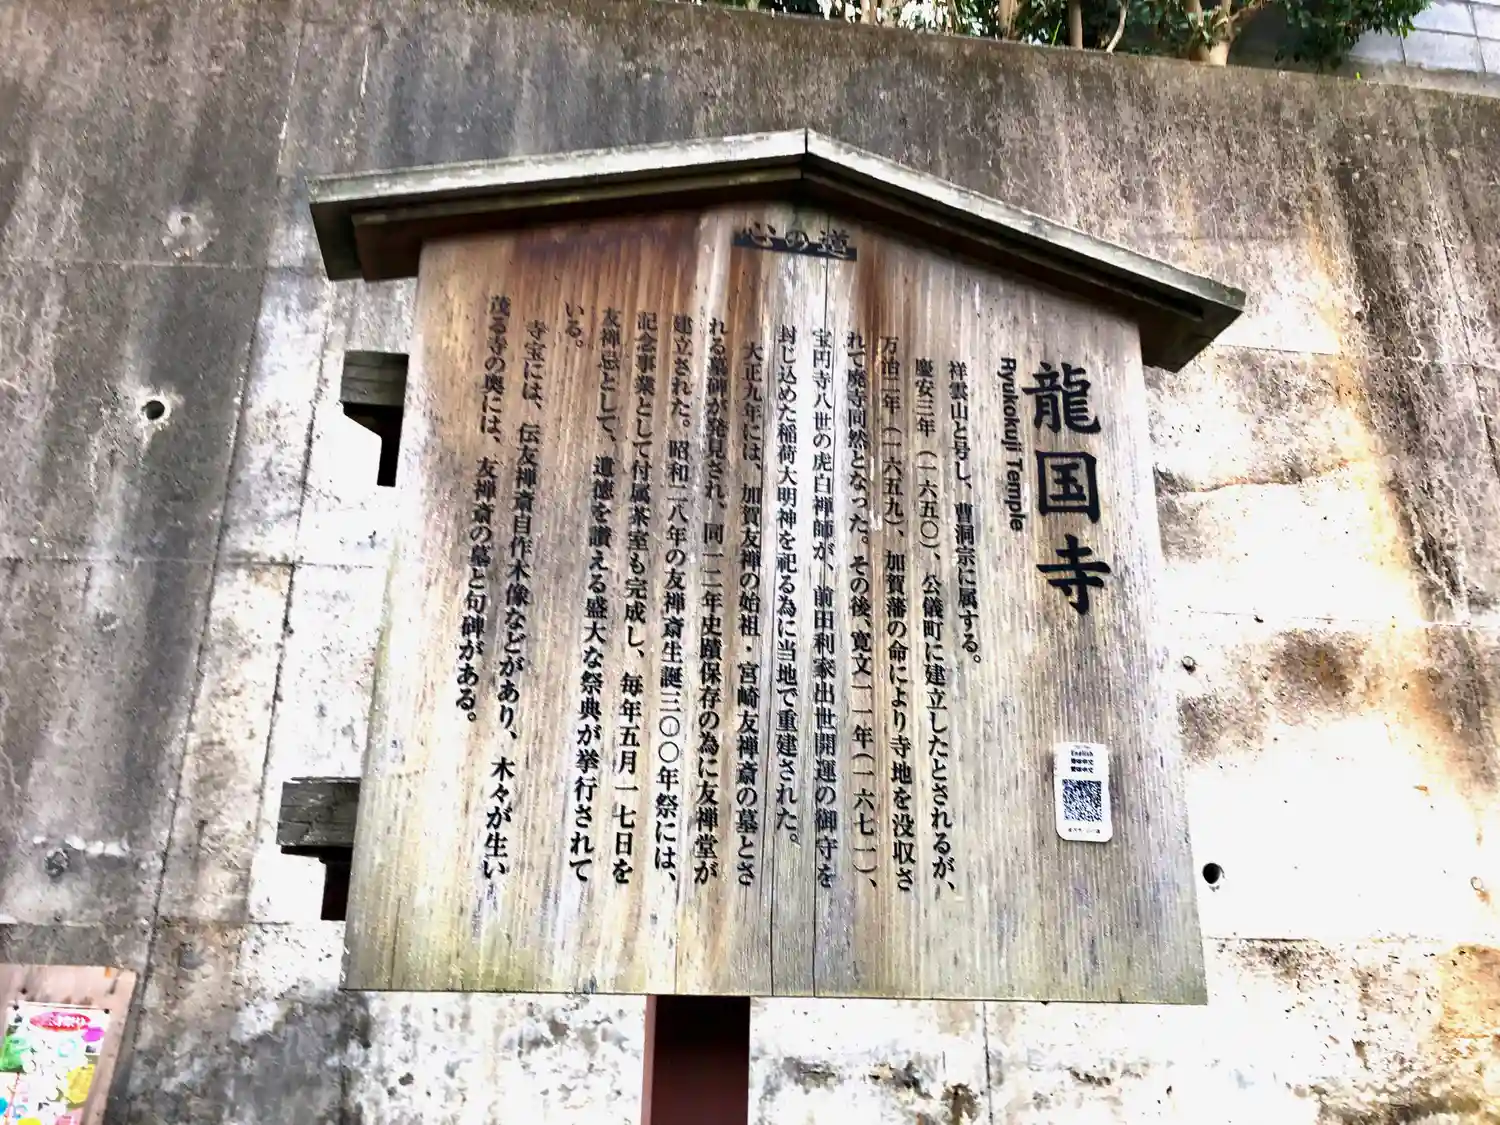 心の道
龍国寺
Ryukokuji Temple
祥雲山と号し、曹洞宗に属する。
慶安三年(一六五〇)、公儀町に建立したとされるが、
万治二年(一六五九)、加賀藩の命により寺地を没収さ
れて廃寺同然となった。その後、寛文一一年(一六七一)、
宝円寺八世の虎白禅師が、前田利家出世開運の御守を
封じ込めた稲荷大明神を祀る為に当地で重建された。
大正九年には、加賀友禅の始祖・宮崎友禅斎の墓とさ
れる墓碑が発見され、同一二年史蹟保存の為に友禅堂が
建立された。昭和二八年の友禅斎生誕三〇〇年祭には、
記念事業として付属茶室も完成し、毎年五月一七日を
友禅忌として、遺徳を讃える盛大な祭典が挙行されて
いる。
寺宝には、伝友禅斎自作木像などがあり、木々が生い
茂る寺の奥には、友禅斎の墓と句碑がある。
English